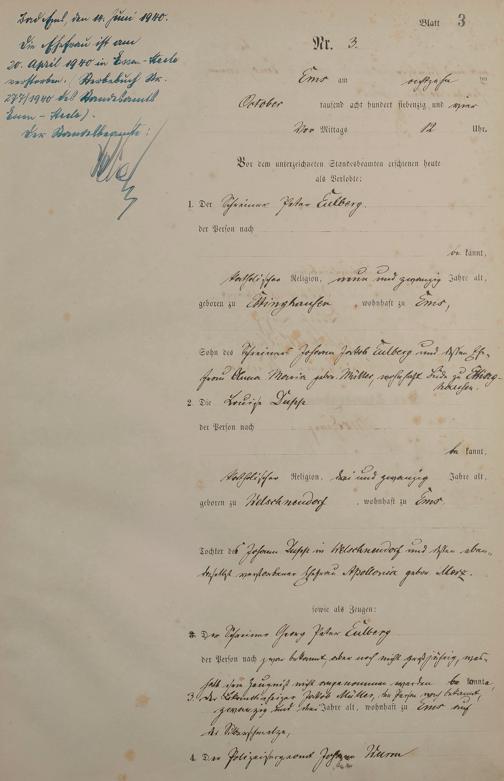 Bad Ems, den 14. Juni 1940.
Die Ehefrau ist am
20. April 1940 in Essen-Steele
verstorben. (Sterbebuch Nr.
277/1940 des Standesamts
Essen-Steele).
Der Standesbeamte:
Blatt 3
Nr. 3.
Ems am achtzehn ten
October tausend acht hundert siebenzig und vier
Vor Mittags 12 Uhr.
Vor dem unterzeichneten Standesbeamten erschienen heute
als Verlobte:
1. Der Schreiner Peter Eulberg.
der Person nach
be kannt,
katholischer Religion, neun und zwanzig Jahre alt,
geboren zu Ettinghausen, wohnhaft zu Ems,
Sohn des Schreiners Johann Jakob Eulberg und dessen Ehe-
frau Anna Maria geb. Müller, wohnhaft Beide zu Etting-
hausen.
2. Die Louise
der Person nach
be kannt,
katholischer Religion, drei und zwanzig Jahre alt,
geboren zu Welschneudorf, wohnhaft zu Ems.
Tochter des Johann in Welschneudorf und dessen eben-
daselbst verstorbener Ehefrau Apollonia geborne Merz.
sowie als Zeugen:
3. Der Schreiner Georg Peter Eulberg
der Person nach zwar bekannt, aber noch nicht großjährig, wes-
halb sein Zeugniß nicht angenommen werden konnte,
3. Der Jakob Müller, der Person nach bekannt,
zwanzig und drei Jahre alt, wohnhaft zu Ems auf
der Silberschmelze,
4. Der Polizeisergeant Johann